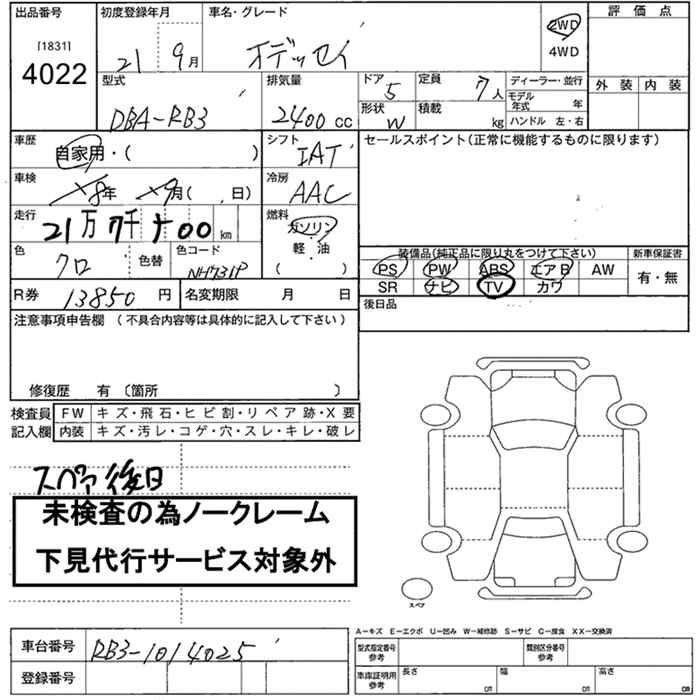 出品番号 初度登録年月 車名・グレード 評価点
[1831]
4022
21 9月 オデッセイ 2WD
4WD
型式 排気量 ドア 定員 ディーラー・並行 外装 内装
DBA-RB3 2400cc 5 7人 モデル年式 年
形状 積載 ハンドル 左・右
W kg
車歴 シフト セールスポイント(正常に機能するものに限ります)
自家用・( ) IAT
車検 冷房
8年 9月( 日) AAC
走行 燃料
21万7千 00km ガソリン
軽・油
( )
色 色替 色コード 装備品(純正品に限り丸をつけて下さい) 新車保証書
クロ NH731P PS PW ABS エアB AW 有・無
SR ナビ TV カワ
R券 13850円 名変期限 月 日 後日品
注意事項申告欄(不具合内容等は具体的に記入して下さい)
修復歴 有(箇所 )
検査員 FW キズ・飛石・ヒビ割・リペア跡・X要
記入欄 内装 キズ・汚レ・コゲ・穴・スレ・キレ・破レ
スペア後日
未検査の為ノークレーム
下見代行サービス対象外
スペア
A-キズ E-エクボ U-凹み W-補修跡 S-サビ C-腐食 XX-交換済
車台番号 RB3-1014025 型式指定番号参考 類別区分番号参考
登録番号 車庫証明用参考 長さ cm 幅 cm 高さ cm